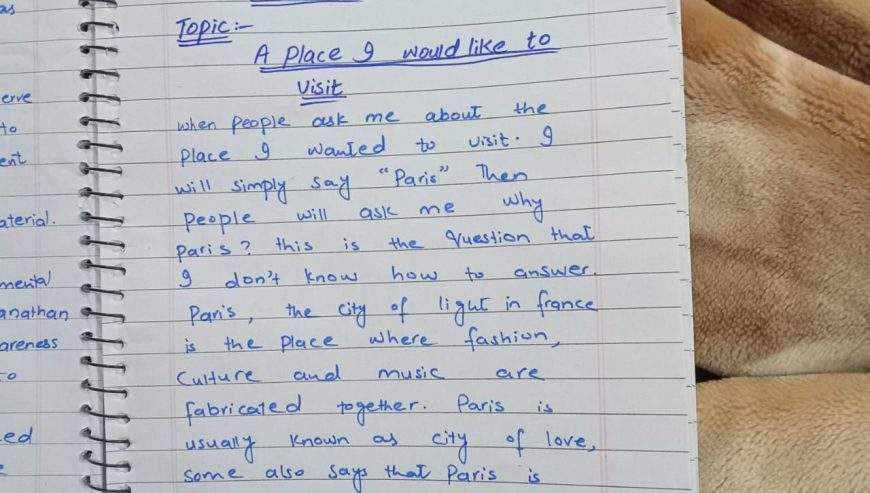 as
erve
to
ent
aterial.
mental
anathan
areness
to
ed
Topic:-
A Place I would like to
Visit
when people ask me about the
place I wanted to visit. I
will simply say "Paris" Then
people will ask me why
Paris? this is the question that
I don't know how to answer.
Paris, the city of light in france
is the place where fashion,
Culture and music are
fabricated together. Paris is
usually known as city of love,
some also says that Paris is